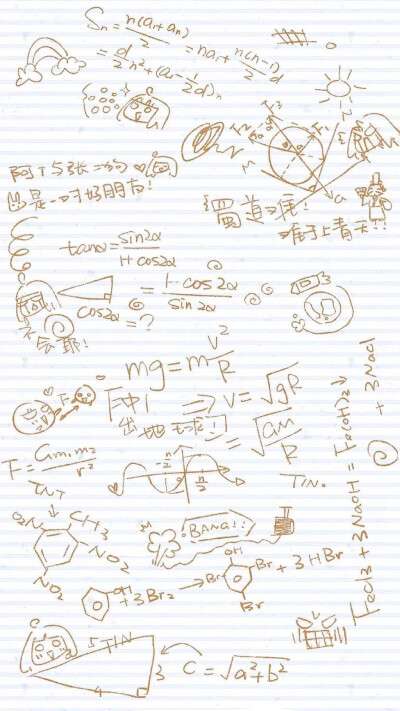 Sn = n(a₁+an)/2 = na₁ + n(n-1)/2 d
= d/2 n² + (a₁ - 1/2 d)n
T₃
T₂
F₁
M
G
阿T与张二狗
是一对好朋友!
蜀道难!
难于上青天!!
tanα = sin2α/1+cos2α
= 1-cos2α/sin2α
cos2α = ?
不会耶!
mg = m v²/R
F
F中1 ⇒ V = √gR
出地球!
= √GM/R
F = Gm₁m₂/r²
-π/2
π/2
TIN.
TNT
O₂N
CH₃
NO₂
NO₂
BANG!!
OH
+ 3Br₂ →
OH
Br
Br
Br
+ 3HBr
FeCl₃ + 3NaOH = Fe(OH)₃↓ + 3NaCl
5 TIN
3
4
C = √a²+b²